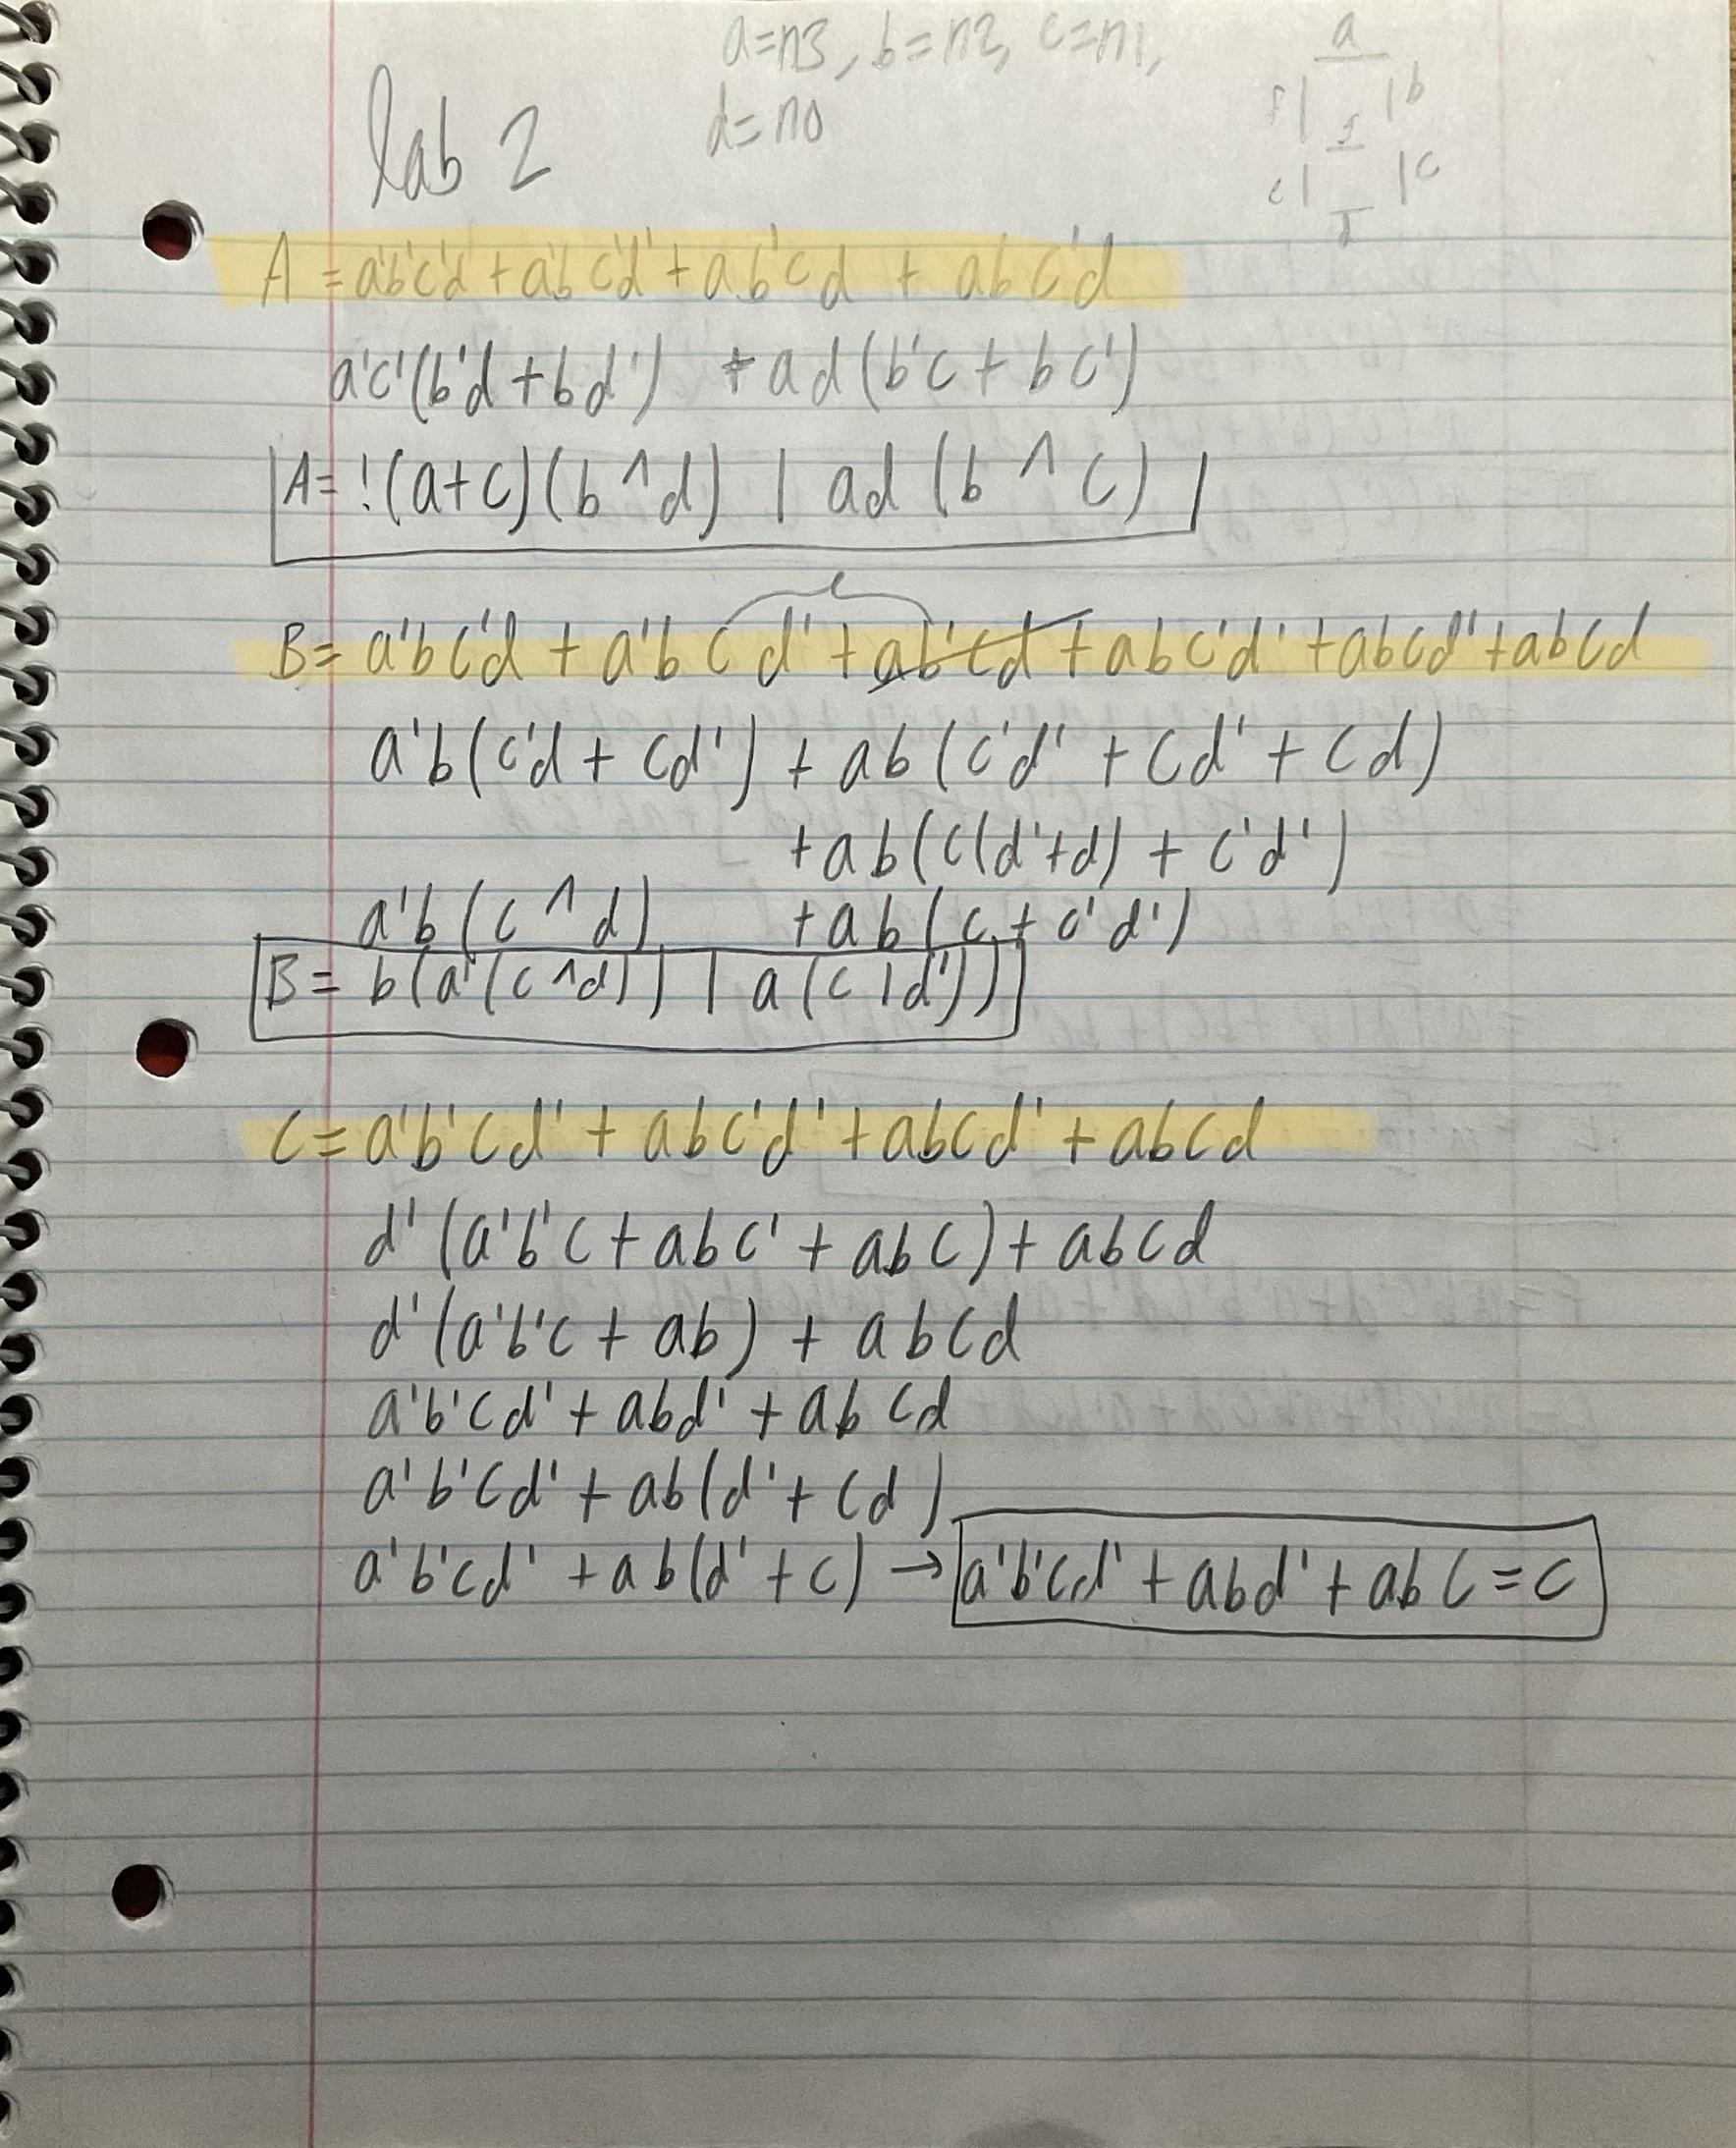 a=n3, b=n2, c=n1,
d=n0
lab 2
a
f b
g
e c
d
A = a'b'c'd + a'bc'd' + ab'cd + abc'd
a'c'(b'd + bd') + ad(b'c + bc')
A= !(a+c)(b^d) | ad (b^c)
B= a'bc'd + a'bcd' + ab'cd + abc'd' + abcd' + abcd
a'b(c'd + cd') + ab(c'd' + cd' + cd)
+ab(c(d'+d) + c'd')
a'b(c^d) +ab(c + c'd')
B= b(a'(c^d)) | a(c|d'))
C= a'b'cd' + abc'd' + abcd' + abcd
d'(a'b'c + abc' + abc) + abcd
d'(a'b'c + ab) + abcd
a'b'cd' + abd' + abcd
a'b'cd' + ab(d' + cd)
a'b'cd' + ab(d' + c) → a'b'cd' + abd' + abc = c